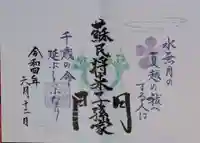 水無月の
夏越の祓へ
する人は
蘇民将来子孫家門
円
千歳の命
延ぶといふなり
令和四年
六月十二日